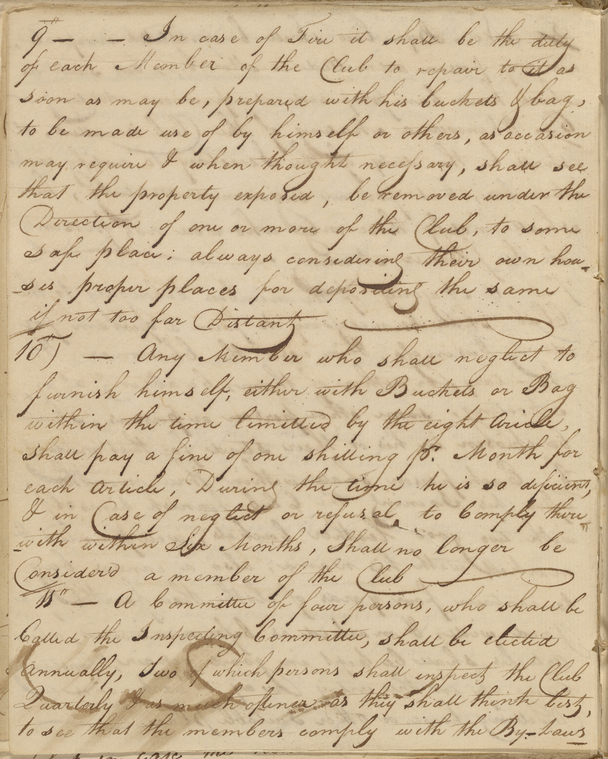 9th — — In case of Fire it shall be the duty
of each Member of the Club to repair to it as
soon as may be, prepared with his buckets & bag,
to be made use of by himself or others, as occasion
may require & when thought necessary, shall see
that the property exposed, be removed under the
Direction of one or more of the Club, to some
safe place; always considering their own hou-
ses proper places for depositing the same
if not too far Distant
10th) — Any Member who shall neglect to
furnish himself, either with Buckets or Bag
within the time limitted by the eight Aricle,
shall pay a fine of one shilling pr. Month for
each article, During the time he is so deficient,
& in Case of neglect or refusal, to Comply there"
with within Six Months, Shall no longer be
Consider'd a member of the Club
11th — A Committee of four persons, who shall be
Called the Inspecting Committee, shall be elected
Annually, Two of which persons shall inspect the Club
Quarterly & as much oftner as they shall think best,
to see that the members comply with the By-Laws